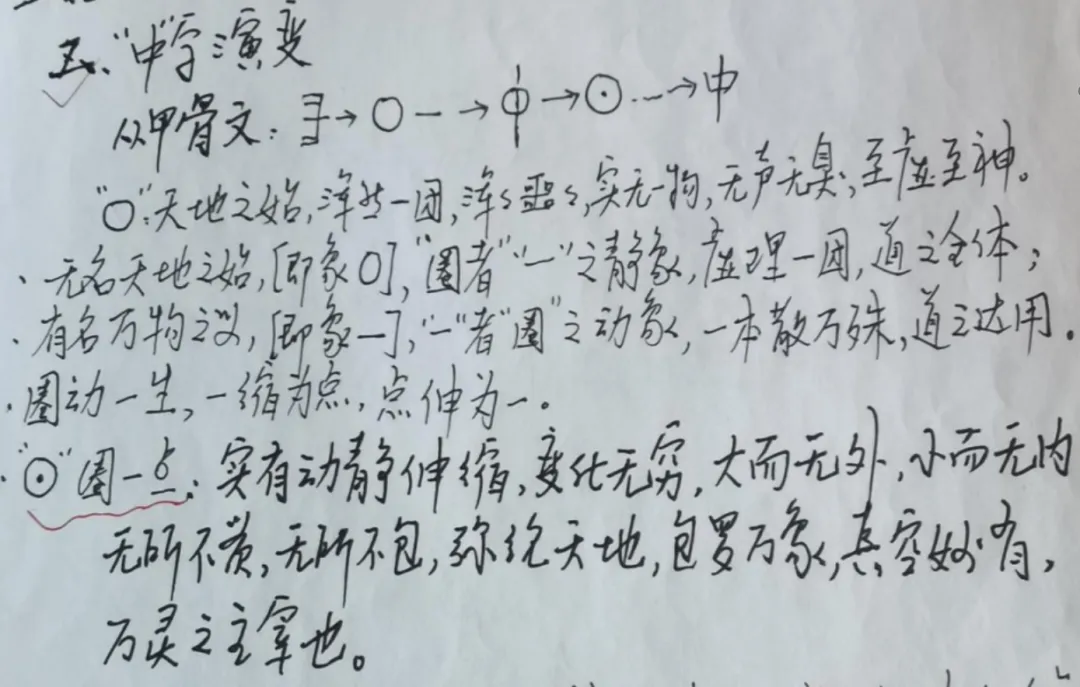 五、“中”字演变
从甲骨文：ヨ→○一→中→⊙…→中
“○”：天地之始，浑然一团，浑浑噩噩，实无一物，无声无臭，至虚至神。
、无名天地之始，[即象○]，“圈者”“一”之静象，虚理一团，道之全体；
、有名万物之母，[即象一]，“一”者“圈”之动象，一本散万殊，道之达用。
、圈动一生，一缩为点，点伸为一。
、“⊙”圈一点：实有动静伸缩，变化无穷，大而无外，小而无内
无所不贯，无所不包，弥纶天地，包罗万象，真空妙有，
万灵之主宰也。